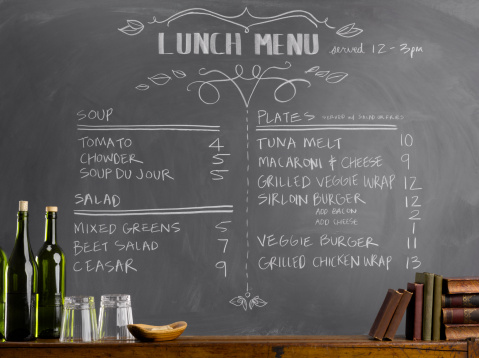 LUNCH MENU served 12 - 3pm
SOUP
TOMATO 4
CHOWDER 5
SOUP DU JOUR 5
SALAD
MIXED GREENS 5
BEET SALAD 7
CEASAR 9
PLATES SERVED W/ SALAD OR FRIES
TUNA MELT 10
MACARONI & CHEESE 9
GRILLED VEGGIE WRAP 12
SIRLOIN BURGER 12
ADD BACON 2
ADD CHEESE 1
VEGGIE BURGER 11
GRILLED CHICKEN WRAP 13